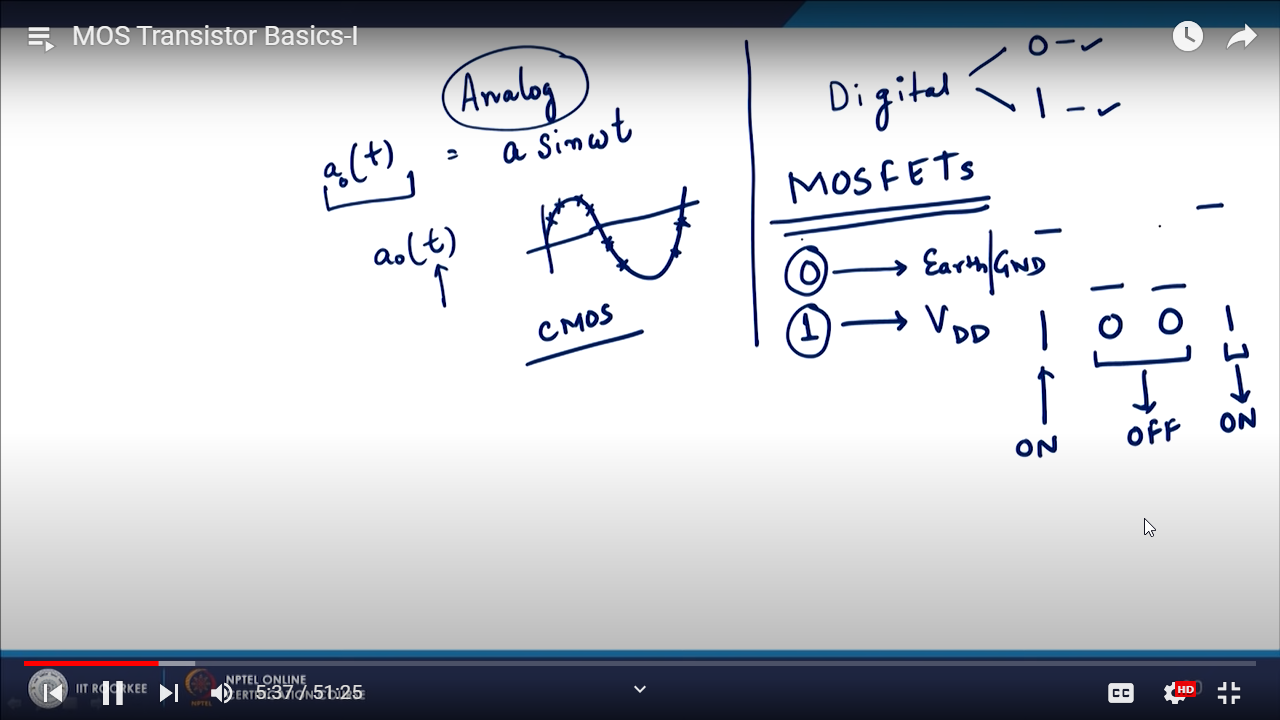 MOS Transistor Basics-I
Analog
a₀(t) = a sinωt
a₀(t)
CMOS
Digital
0 - ✓
1 - ✓
MOSFETs
0 → Earth|GND
1 → VDD
1 0 0 1
ON OFF ON
IIT ROORKEE
NPTEL ONLINE
CERTIFICATION COURSE
NPTEL
5:37 / 51:25
CC
HD